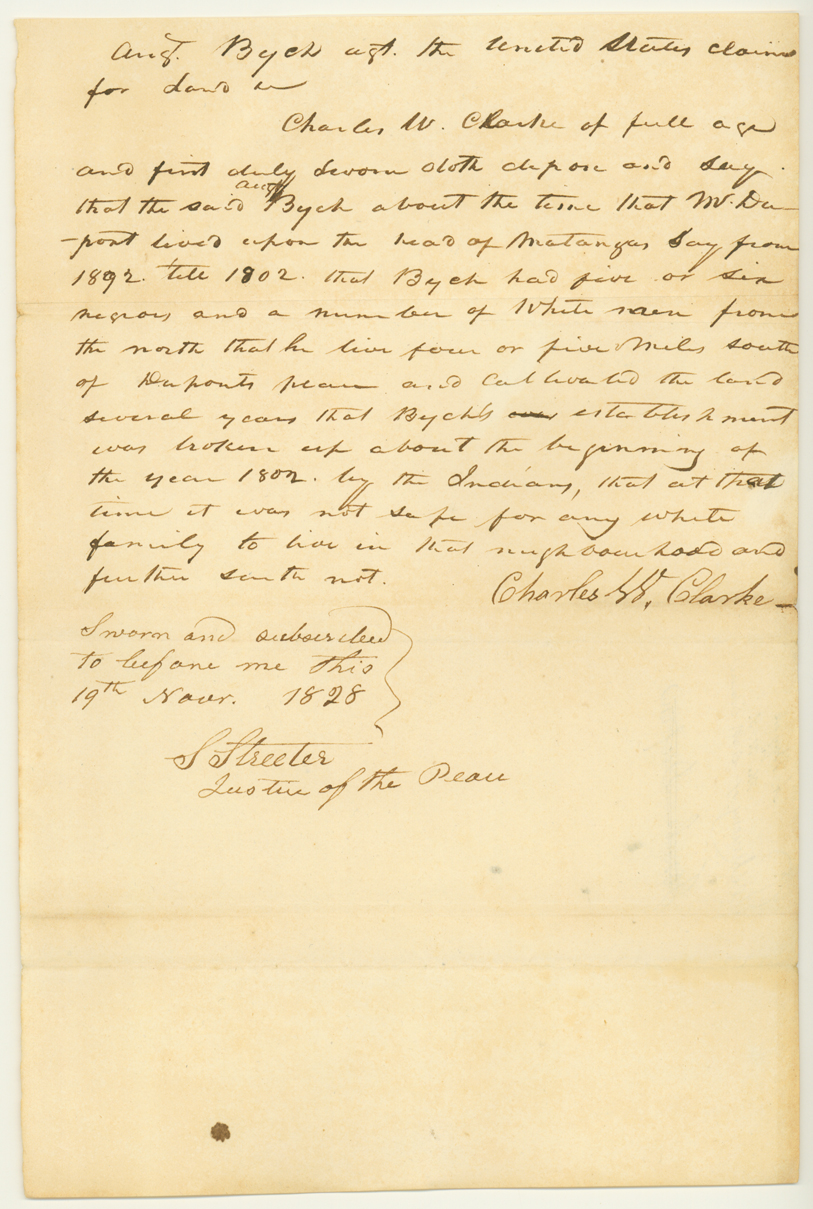 Augt. Bych agt. the United States claim
for Land in
Charles W. Clarke of full age
and first duly sworn doth depose and say
that the said Augt Bych about the time that Mr. Du-
-pont lived upon the head of Matanzas Say from
1892. till 1802. that Bych had five or six
negroes and a number of White men from
the north that he live four or five Miles south
of Duponts place and Cultivated the land
several years that Bych's establishment
was broken up about the beginning of
the year 1802. by the Indians, that at that
time it was not safe for any white
family to live in that neighbourhood and
further saith not.
Charles W. Clarke
Sworn and subscribed
to before me this
19th Novr. 1828
S Streeter
Justice of the Peace